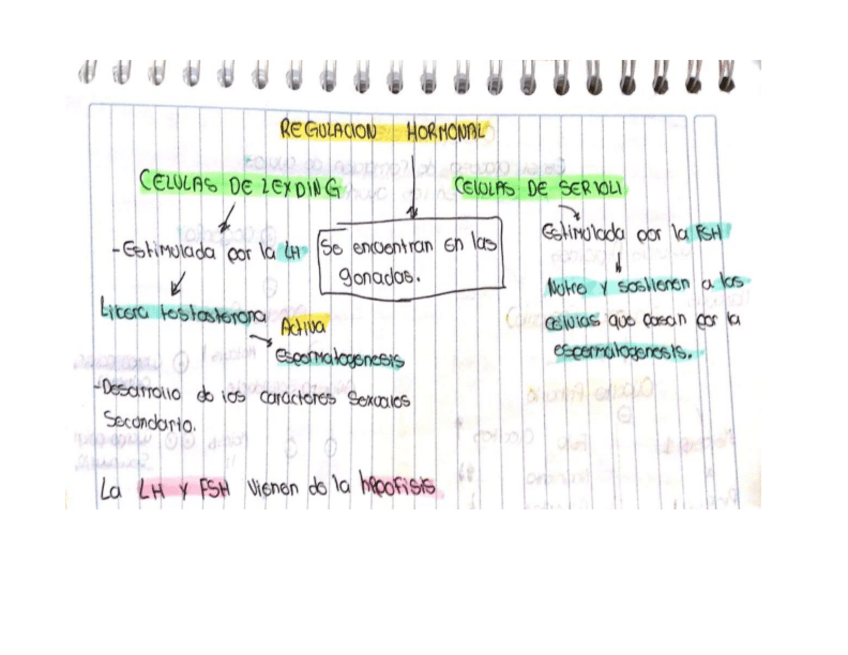 REGULACION HORMONAL
CELULAS DE LEXDING
CELULAS DE SERTOLI
Se encuentran en las
gonadas.
-Estimulada por la LH
Libera testosterona
Activa
Espermatogenesis
-Desarrollo de los caractores sexuales
Secundario.
Estimulada por la FSH
Nutre y sostienen a las
celulas que pasan por la
espermatogenesis.
La LH y FSH vienen de la hipofisis